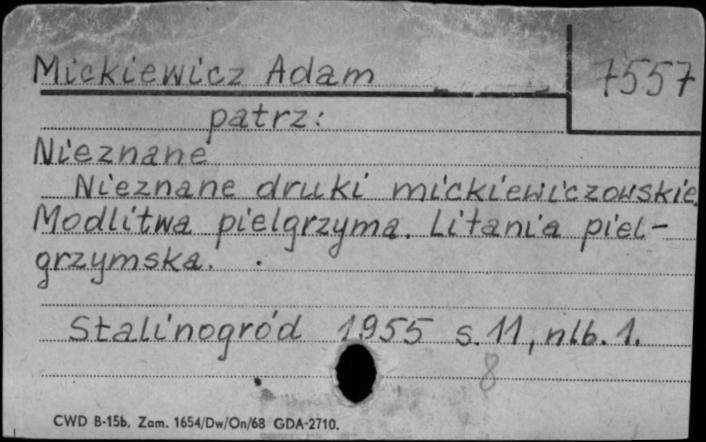 Mickiewicz Adam
7557
patrz:
Nieznane
Nieznane druki mickiewiczowskie.
Modlitwa pielgrzyma. Litania piel-
grzymska.
Stalinogród 1955 s. 11, nlb. 1.
8
CWD B-15b. Zam. 1654/Dw/On/68 GDA-2710.